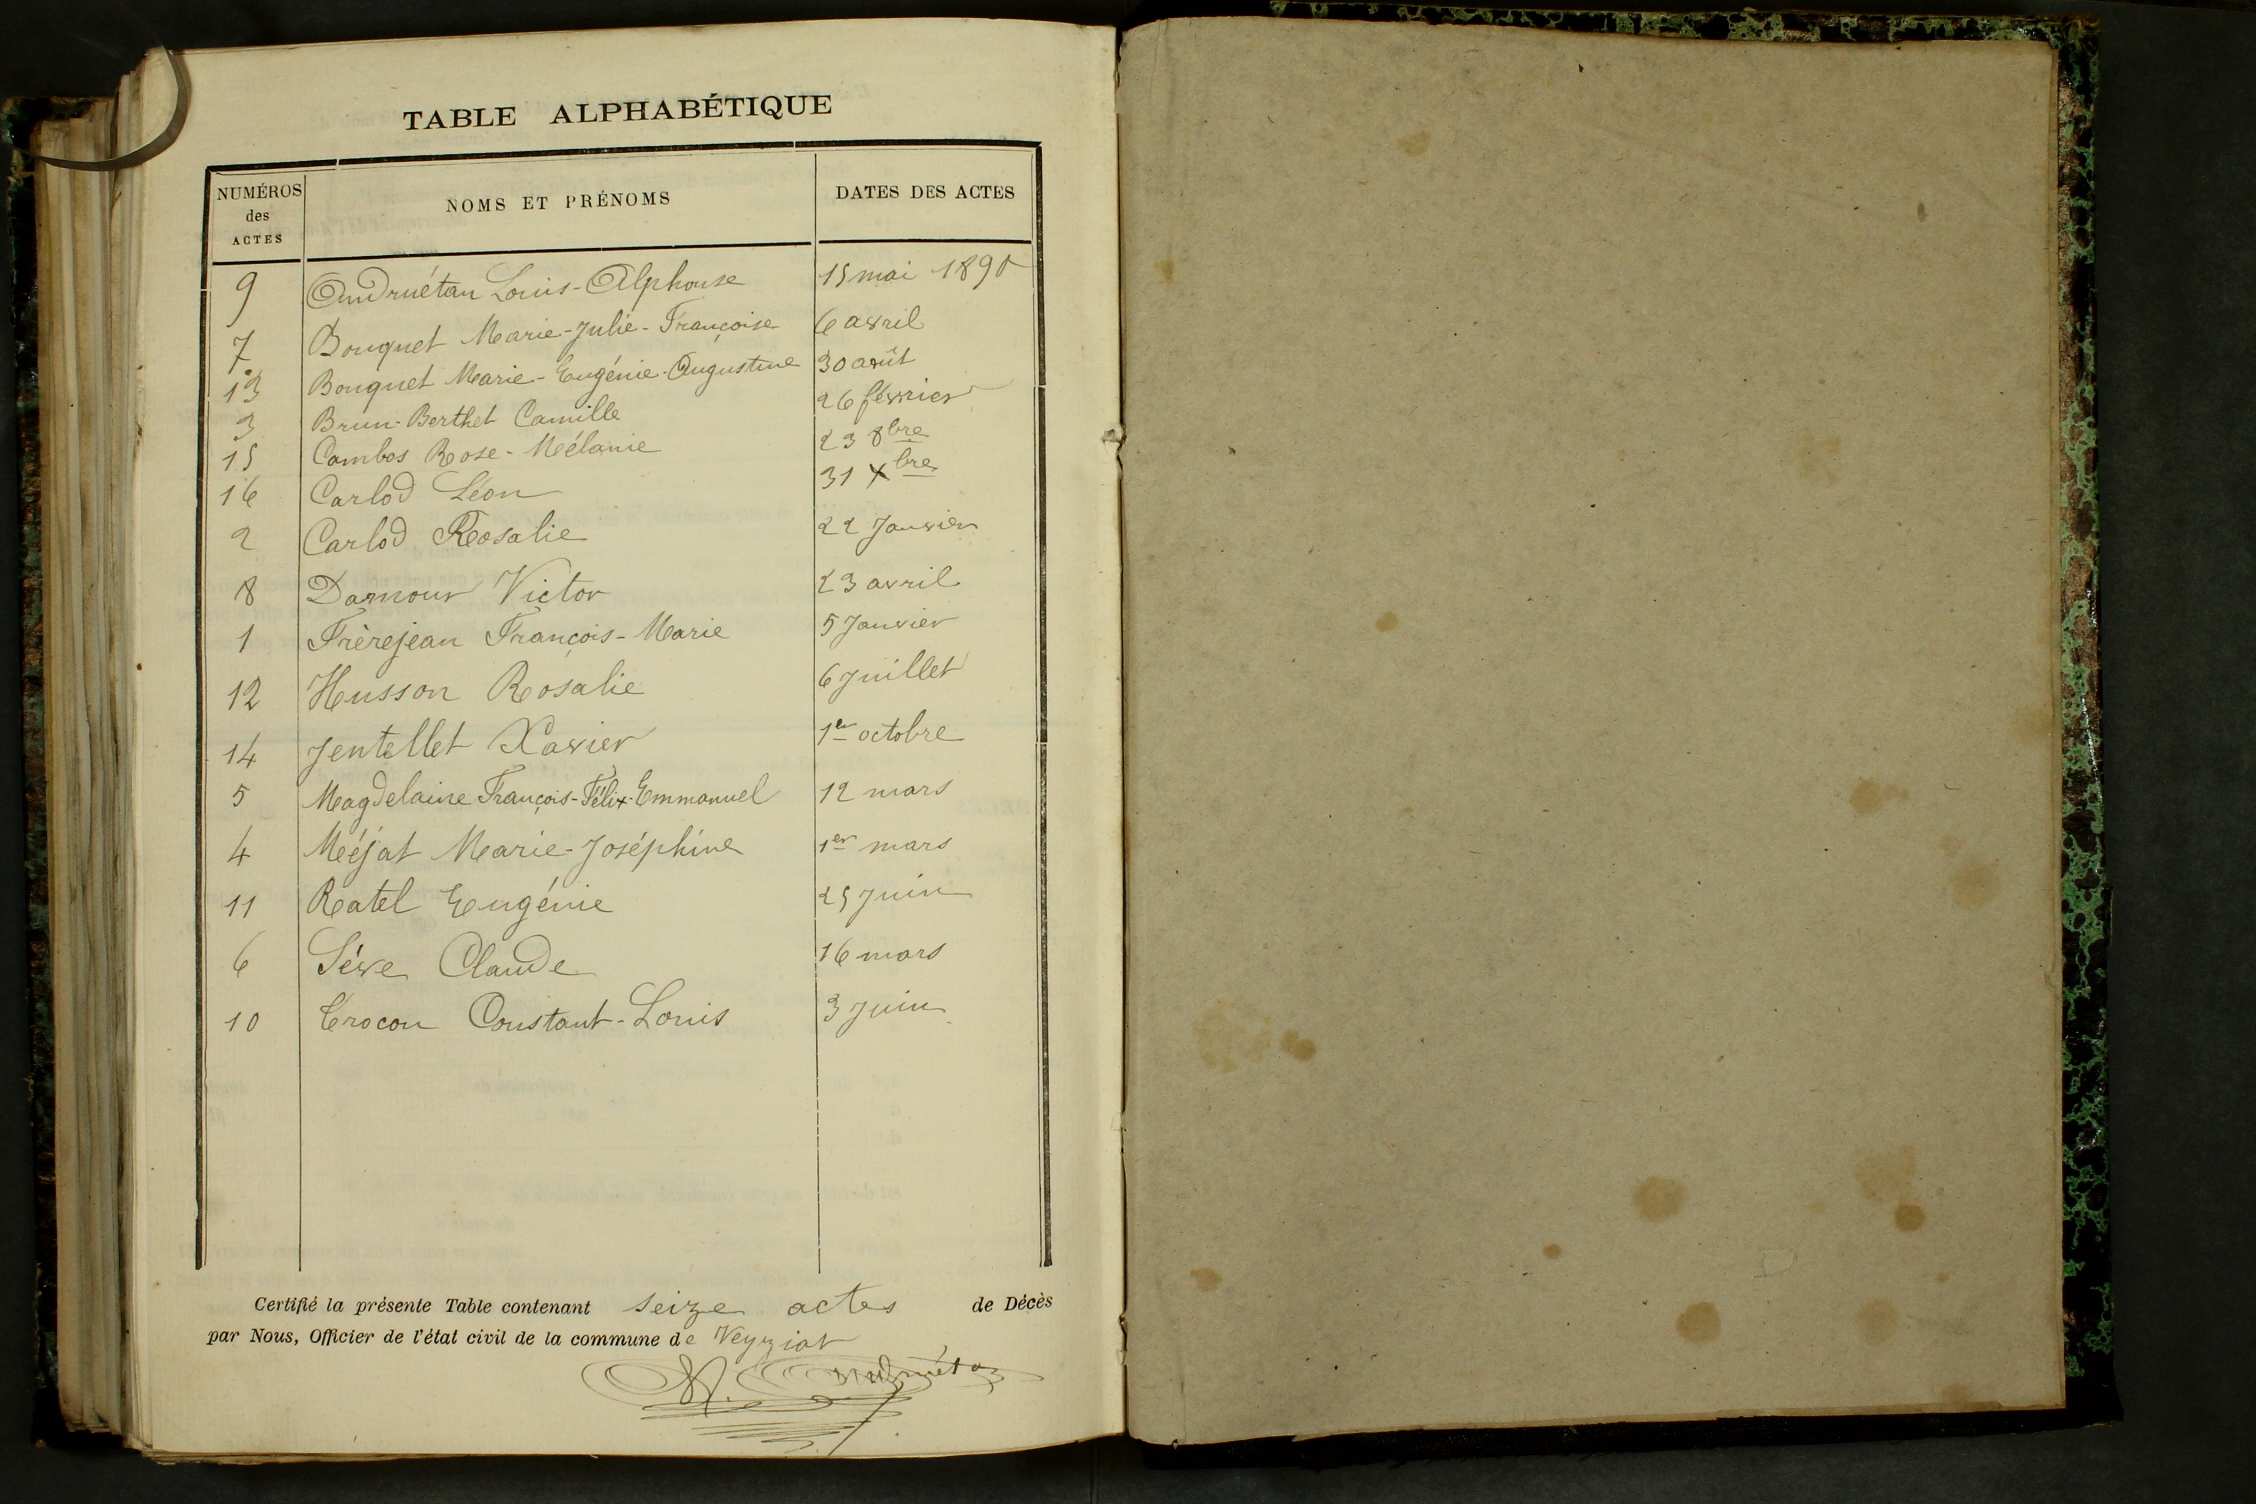 TABLE ALPHABÉTIQUE
NUMÉROS des ACTES NOMS ET PRÉNOMS DATES DES ACTES
9 Andruétan Louis-Alphonse 15 mai 1890
7 Bouquet Marie-Julie-Françoise 6 avril
13 Bouquet Marie-Eugénie-Augustine 30 août
3 Brun-Berthet Camille 26 février
15 Combos Rose-Mélanie 23 8bre
16 Carlod Léon 31 Xbre
2 Carlod Rosalie 22 Janvier
8 Damour Victor 23 avril
1 Frèrejean François-Marie 5 Janvier
12 Husson Rosalie 6 Juillet
14 Jentellet Xavier 1er octobre
5 Magdelaine François-Félix-Emmanuel 12 mars
4 Méjat Marie-Joséphine 1er mars
11 Ratel Eugénie 25 Juin
6 Sève Claude 16 mars
10 Crocon Constant-Louis 3 Juin
Certifié la présente Table contenant seize actes de Décès
par Nous, Officier de l'état civil de la commune de Veyziat